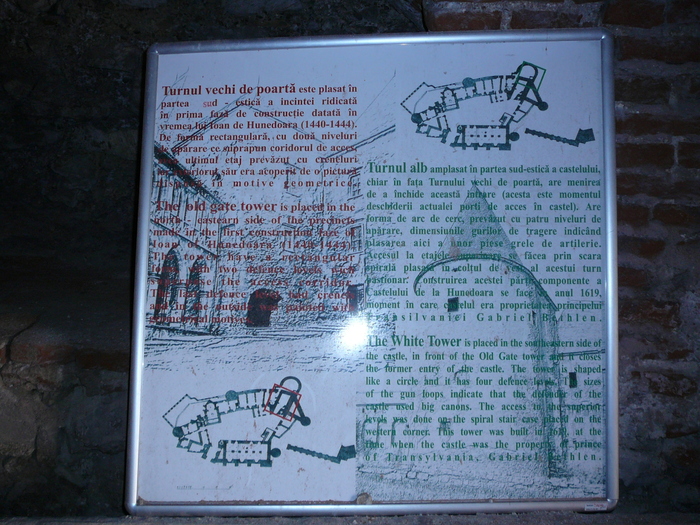 Turnul vechi de poartă este plasat în
partea sud - estică a incintei ridicată
în prima fază de construcție datată în
vremea lui Ioan de Hunedoara (1440-1444).
De formă rectangulară, cu două niveluri
de apărare ce suprapun coridorul de acces,
ultimul etaj prevăzut cu creneluri
exteriorul său era acoperit de o pictură
în motive geometrice
The old gate tower is placed in the
eastearn side of the precincts
made in the first construction faze of
Ioan of Hunedoara (1440-1444).
The tower have a rectangular
form with two defence levels wich
superpose the access corridor.
The last defence and crenels
and the outside was painted with
geometrical motives
Turnul alb amplasat în partea sud-estică a castelului,
chiar în fața Turnului vechi de poartă, are menirea
de a închide această intrare (acesta este momentul
deschiderii actualei porți de acces în castel). Are
formă de arc de cerc, prevăzut cu patru niveluri de
apărare, dimensiunile gurilor de tragere indicând
plasarea aici a unor piese grele de artilerie.
Accesul la etajele făcea prin scara
spirală plasată în colțul de al acestui turn
bastionar. Construirea acestei părți componente a
Castelului de la Hunedoara se face în anul 1619,
moment în care castelul era proprietatea principelui
Transilvaniei Gabriel Bethlen.
The White Tower is placed in the southeastern side of
the castle, in front of the Old Gate tower and it closes
the former entry of the castle. The tower is shaped
like a circle and it has four defence levels. The sizes
of the gun loops indicate that the defenders of the
castle used big canons. The access at the superior
levels was done on the spiral stair case placed on the
western corner. This tower was built in at the
time when the castle was the property of prince
of Transylvania, Gabriel Bethlen.